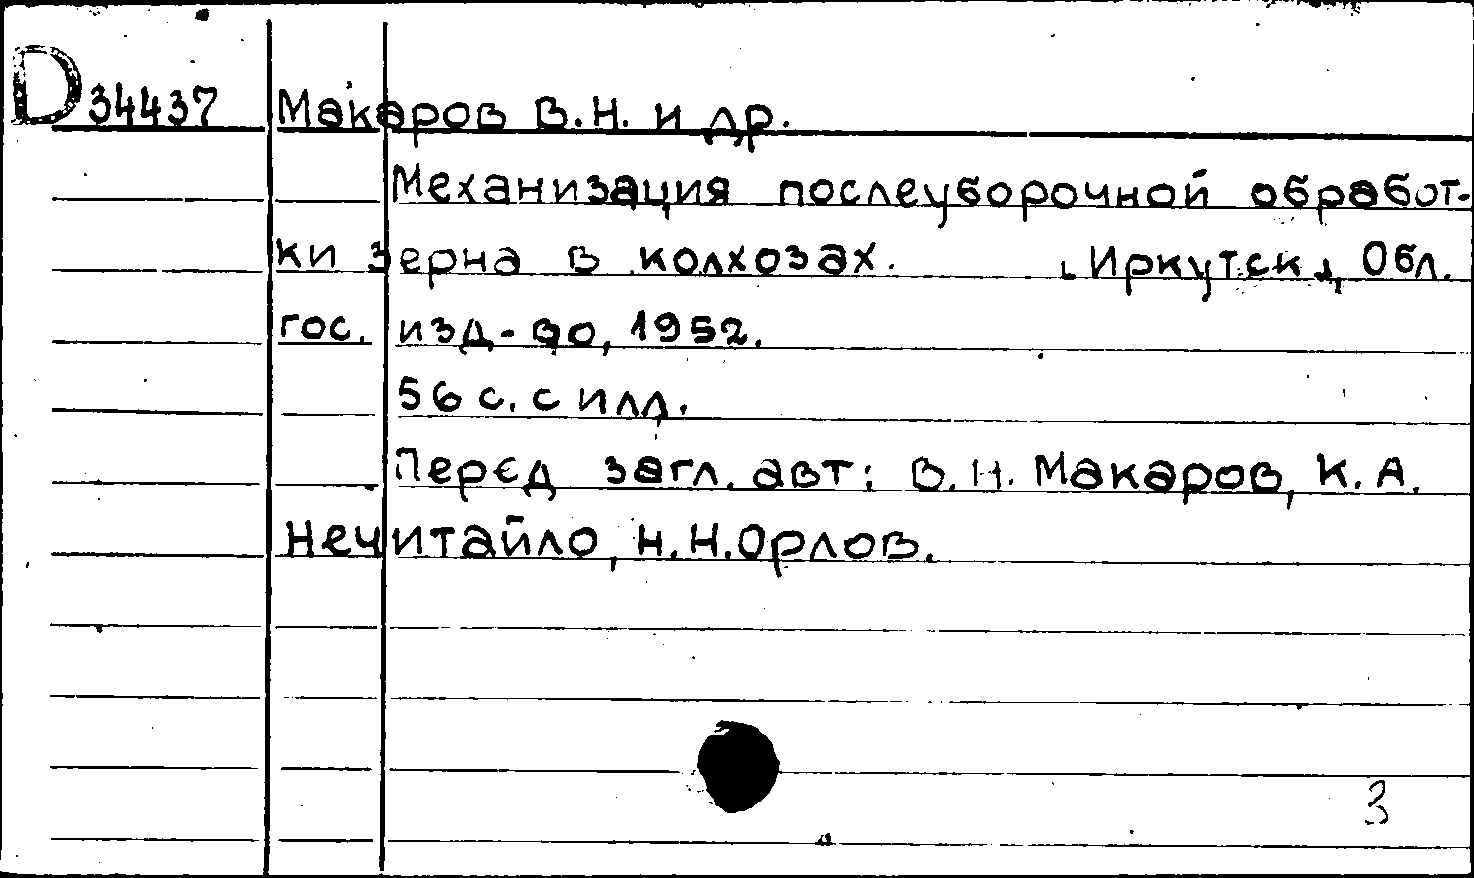 D 34437 Макаров В.Н. и др.
Механизация послеуборочной обработ-
ки зерна в колхозах. [Иркутск], Обл.
гос. изд-во, 1952.
56 с. с илл.
Перед загл. авт: В.Н. Макаров, К.А.
Нечитайло, Н.Н.Орлов.
3